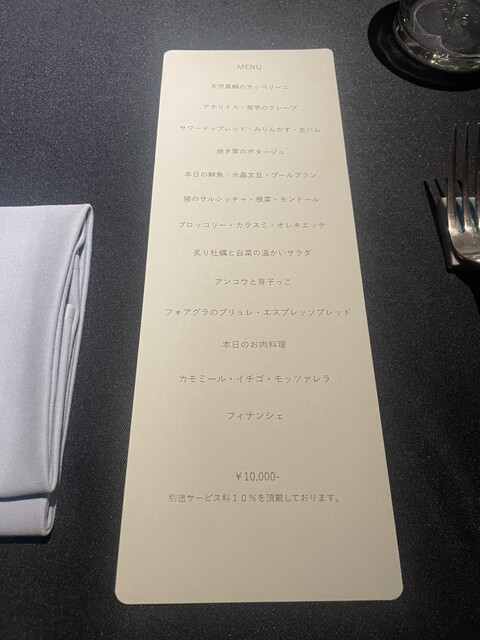 MENU
天然真鯛のカッペリーニ
アオリイカ・菊芋のクレープ
サワードゥブレッド・みりんかす・生ハム
焼き栗のポタージュ
本日の鮮魚・水晶文旦・ブールブラン
猪のサルシッチャ・根菜・モンドール
ブロッコリー・カラスミ・オレキエッテ
炙り牡蠣と白菜の温かいサラダ
アンコウと芽子っこ
フォアグラのブリュレ・エスプレッソブレッド
本日のお肉料理
カモミール・イチゴ・モッツァレラ
フィナンシェ
￥10,000-
別途サービス料１０％を頂戴しております。